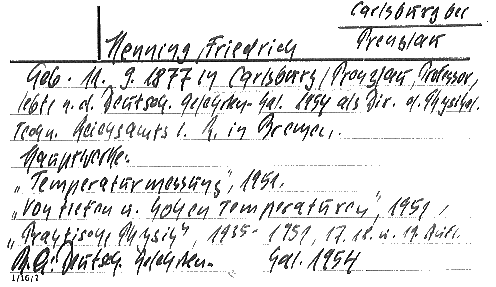 Carlsburg bei
Prenzlau
Henning, Friedrich
Geb. 11. 9. 1877 in Carlsburg/Prenzlau, Professor,
lebte n. d. Deutsch. Gelehrten-Kal. 1954 als Dir. d. Physikal.
Techn. Reichsamts i. R. in Bremen.
Hauptwerke:
„Temperaturmessung", 1951,
„Von tiefen u. hohen Temperaturen", 1951,
„Praktische Physik", 1935- 1951, 17. 18. u. 19. Aufl.
Deutsch. Gelehrten- Kal. 1954